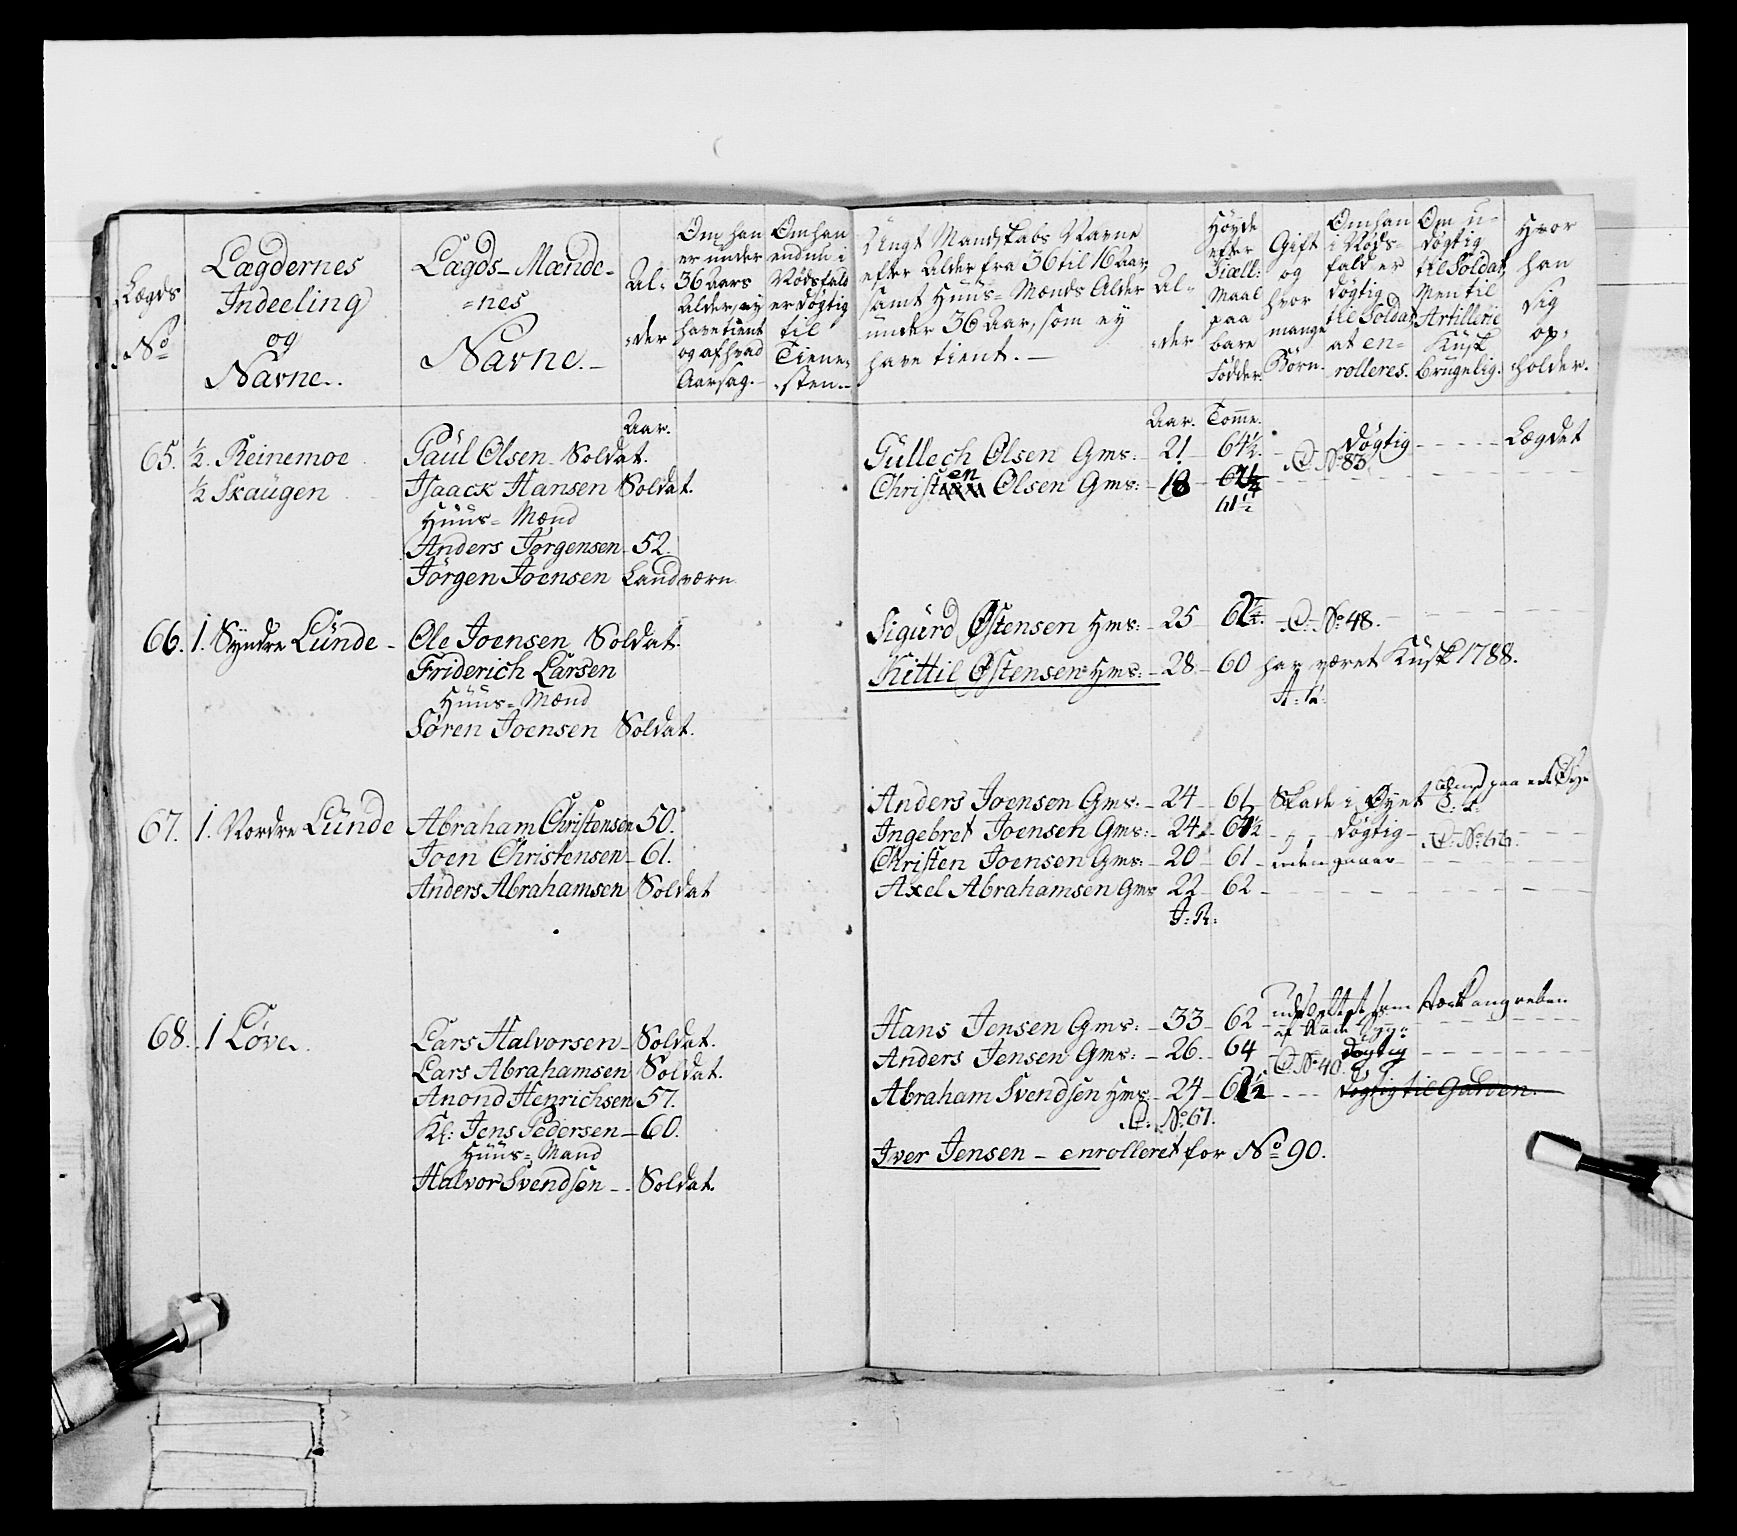 Lægds
No
Lægdernes
Indeeling
og
Navne.
Lægds-Mænde-
=nes
Navne.
Al=
=der
Om han
er under
36 Aars
Alder, ey
have tient
og af hvad
Aarsag.
Om han
endnu i
Nødsfald
er døgtig
til
Tiene=
=sten.
Ungt Mandskabs Navne
efter Alder fra 36 til 16 Aar,
samt Huus=Mænds Alder
under 36 Aar, som ey
have tient.
Al=
=der
Høyde
efter
Siæll:
Maal
paa
bare
Fødder.
Gift
og
hvor
mange
Børn.
Om han
i Nøds=
fald er
døgtig
til Soldat
at en=
rolleres.
Om u=
døgtig
til Soldat,
Men til
Artillerie
Kusk
brugelig.
Hvor
han
sig
op=
holder.
Aar.
65. ½. Reinemoe Paul Olsen Soldat.
½ Skaugen Isaack Hansen Soldat.
Huus=Mænd
Anders Jørgensen 52.
Jörgen Joensen Landværn
66. 1. Syndre Lunde - Ole Joensen Soldat.
Friderich Larsen
Huus=Mænd
Søren Joensen Soldat.
67. 1. Nordre Lunde Abraham Christensen 50.
Joen Christensen 61.
Anders Abrahamsen Soldat
68. 1 Løve. Lars Halvorsen Soldat.
Lars Abrahamsen Soldat.
Anond Henrichsen 57.
Kl: Jens Pedersen 60.
Huus=Mand
Halvor Svendsen Soldat.
Aar. Tomme.
Gullech Olsen Gms: 21 64½. Døgtig Lægdet
C. No 83.
Christen Olsen Gms: 18
61½
Sigurd Østensen Hms: 25 C. No 48.
Kittil Østensen Hms: 28 60 har været Kusk 1788.
Anders Joensen Gms. 24 61 Skade i Øyet
Ingebret Joensen Gms: 24 Døgtig
Christen Joensen Gms: 20 61
Axel Abrahamsen Gms 22 62
J: R:
Hans Jensen Gms: 33 62
Anders Jensen Gms: 26. 64 døgtig
C. No 40.
Abraham Svendsen Hms 24 Døgtig til Garden.
C. No 67.
Iver Jensen - enrolleret for No 90.